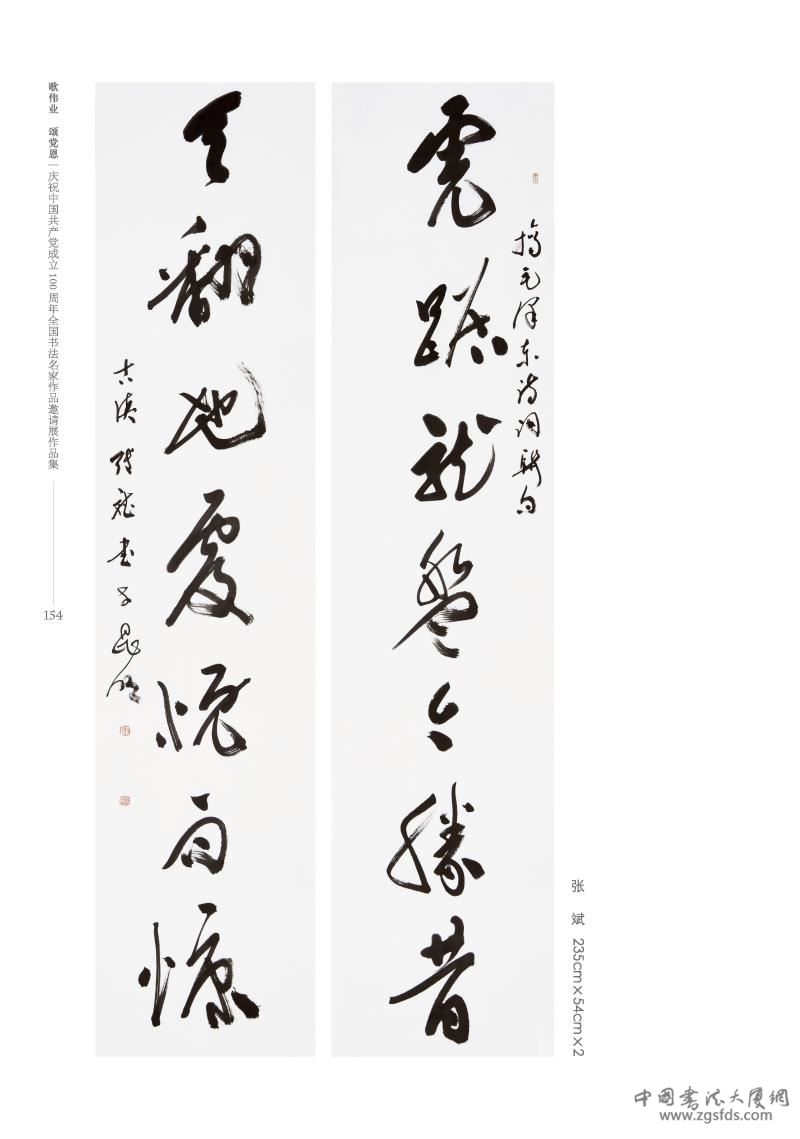 虎踞龙盘今胜昔
摘毛泽东诗词联句
天翻地覆慨而慷
古滇张斌书于昆明
歌伟业 颂党恩 | 庆祝中国共产党成立100周年全国书法名家作品邀请展作品集
154
张 斌 235cm×54cm×2
中国书法大厦網
www.zgsfds.com